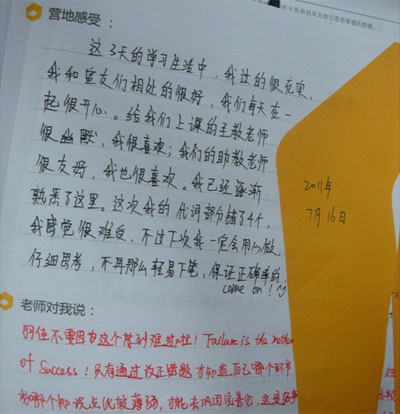 营地感受：
这3天的学习生活中，我过的很充实，
我和室友们相处的很好，我们每天在一
起很开心。给我们上课的主教老师
很幽默，我很喜欢；我们的助教老师
很友好，我也很喜欢。我已经逐渐
熟悉了这里。这次我的代词部分错了4个，
我感觉很难受，不过下次我一定会用心做，
仔细思考，不再那么轻易下笔，保证正确率的，
come on！
2011年
7月16日
老师对我说：
不要因为这个感到难过啦！Failure is the mother
of Success！只有通过改正错题才知道自己哪个环节